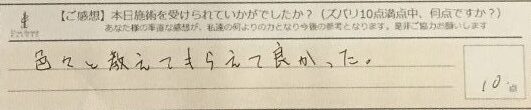 【ご感想】本日施術を受けられていかがでしたか?（ズバリ10点満点中、何点ですか?）
あなた様の率直な感想が、私達の何よりの力となり今後の参考となります。是非ご協力お願いします
色々と教えてもらえて良かった。
10点